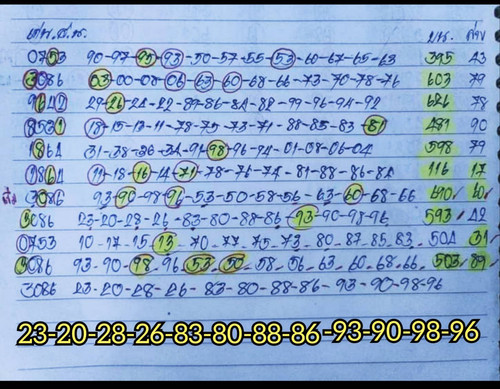 0753 90-97-95-93-50-57-55-53-60-67-65-63 395 43
3086 03-00-08-06-63-60-68-66-73-70-78-76 603 79
9642 29-26-24-22-89-86-84-82-99-96-94-92 626 78
8531 18-15-13-11-78-75-73-71-88-85-83-81 481 90
1864 31-38-36-34-91-98-96-94-01-08-06-04 598 79
1864 11-18-16-14-71-78-76-74-81-88-86-84 116 17
3086 93-90-98-96-53-50-58-56-63-60-68-66 690 60
3086 23-20-28-26-83-80-88-86-93-90-98-96 593 42
0753 10-17-15-13-70-77-75-73-80-87-85-83 504 31
3086 93-90-98-96-53-50-58-56-63-60-68-66 503 89
3086 23-20-28-26-83-80-88-86-93-90-98-96
23-20-28-26-83-80-88-86-93-90-98-96